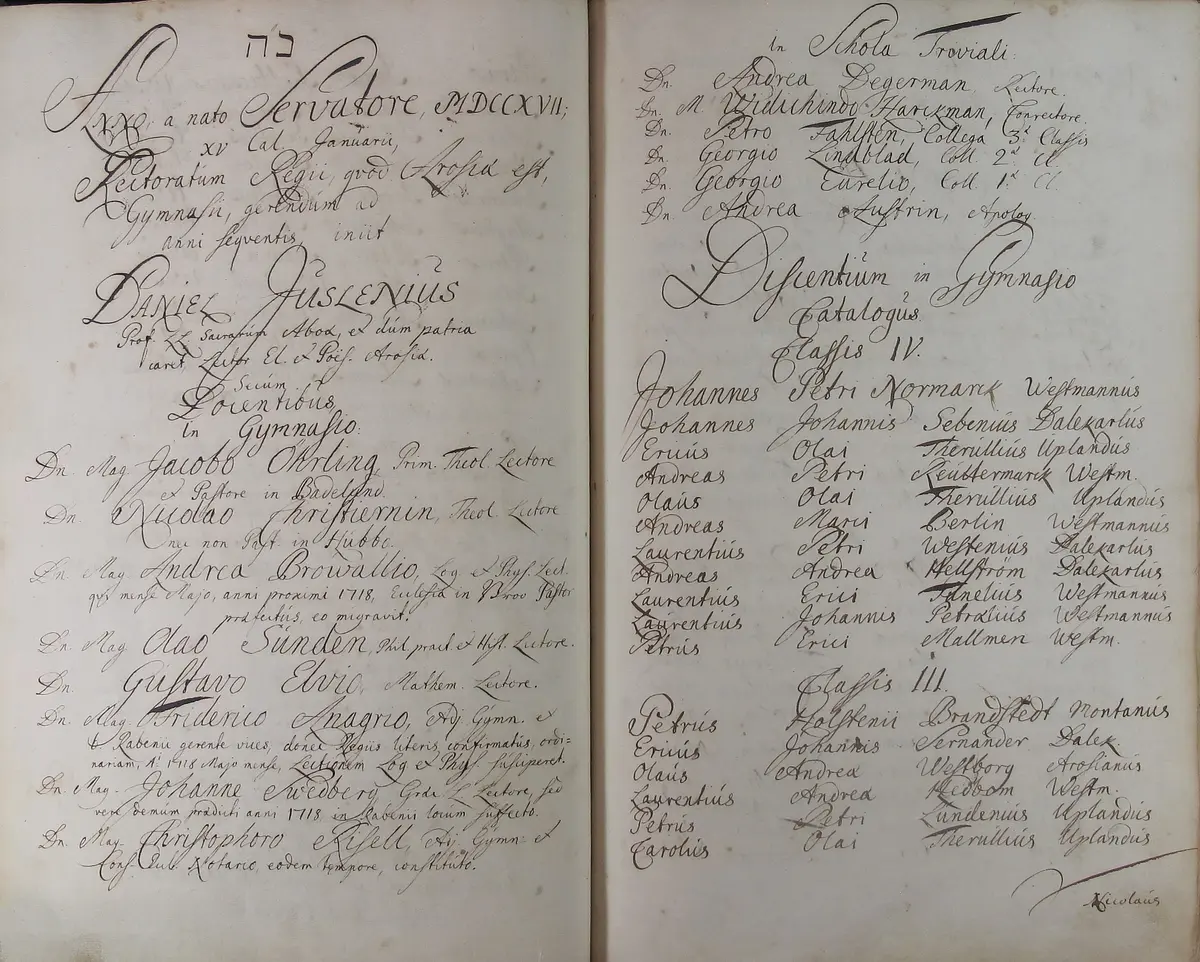 בה
Anno, a nato Servatore, MDCCXVII;
XV Cal. Januarii,
Rectoratum Regii, qvod Arosiæ est,
Gymnasii, gerendum ad
anni seqventis, iniit
DANIEL JUSLENIUS
Prof. LL. Sacrarum Aboæ, et dum patria
caret Lector El. et Poës. Arosiæ.
Secum
Docentibus
In Gymnasio:
Dn. Mag. Jacobo Öhrling, Prim. Theol. Lectore
et Pastore in Badelund.
Dn. Nicolao Christiernin, Theol. Lectore
nec non Past. in Hubbo.
Dn. Mag. Andrea Browallio, Log. et Phys. Lect.
qvi mense Majo, anni proximi 1718, Ecclesiæ in Bro Pastor
præfectus, eo migravit.
Dn. Mag. Olao Sundén, Phil. pract. et Hist. Lectore.
Dn. Gustavo Elvio, Mathem. Lectore.
Dn. Mag. Friderico Anagrio, Adj. Gymn. et
Rabenii gerente vices, donec Regiis literis confirmatus, ordi-
nariam, A:o 1718 Majo mense, Lectionem Log. et Phys. susciperet.
Dn. Mag. Johanne Swedberg, Græc. L. Lectore, sed
vere demum prædicti anni 1718, in Rabenii locum suffecto.
Dn. Mag. Christophoro Risell, Adj. Gymn. et
Cons. Eccl. Notario, eodem tempore, constituto.
In Schola Triviali:
Dn. Andrea Degerman, Rectore.
Dn. M. Widichindo Harckman, Conrectore.
Dn. Petro Fahlsten, Collega 3:æ Classis
Dn. Georgio Lindblad, Coll. 2:æ Cl.
Dn. Georgio Eurelio, Coll. 1:æ Cl.
Dn. Andrea Austrin, Apolog.
Discentium in Gymnasio
Catalogus
Classis IV.
Johannes Petri Normarck Westmannus
Johannes Johannis Sebenius Dalekarlus
Ericus Olai Therullius Uplandus
Andreas Petri Reustermarck Westm.
Olaus Olai Therullius Uplandus
Andreas Marci Berlin Westmannus
Laurentius Petri Westenius Dalekarlus
Andreas Andreæ Hellström Dalekarlus
Laurentius Erici Fanelius Westmannus
Laurentius Johannis Petrælius Westmannus
Petrus Erici Mallmen Westm.
Classis III.
Petrus Holstenii Brandstedt Montanus
Ericus Johannis Fernander Dalek.
Olaus Andreæ Westborg Arosianus
Laurentius Andreæ Hedbom Westm.
Petrus Petri Lundenius Uplandus
Carolus Olai Therullius Uplandus
Nicolaus